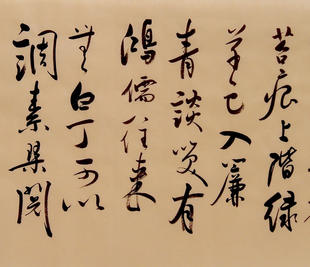 苔痕上階緑
草色入簾
青談笑有
鴻儒往來
無白丁可以
調素琴閱